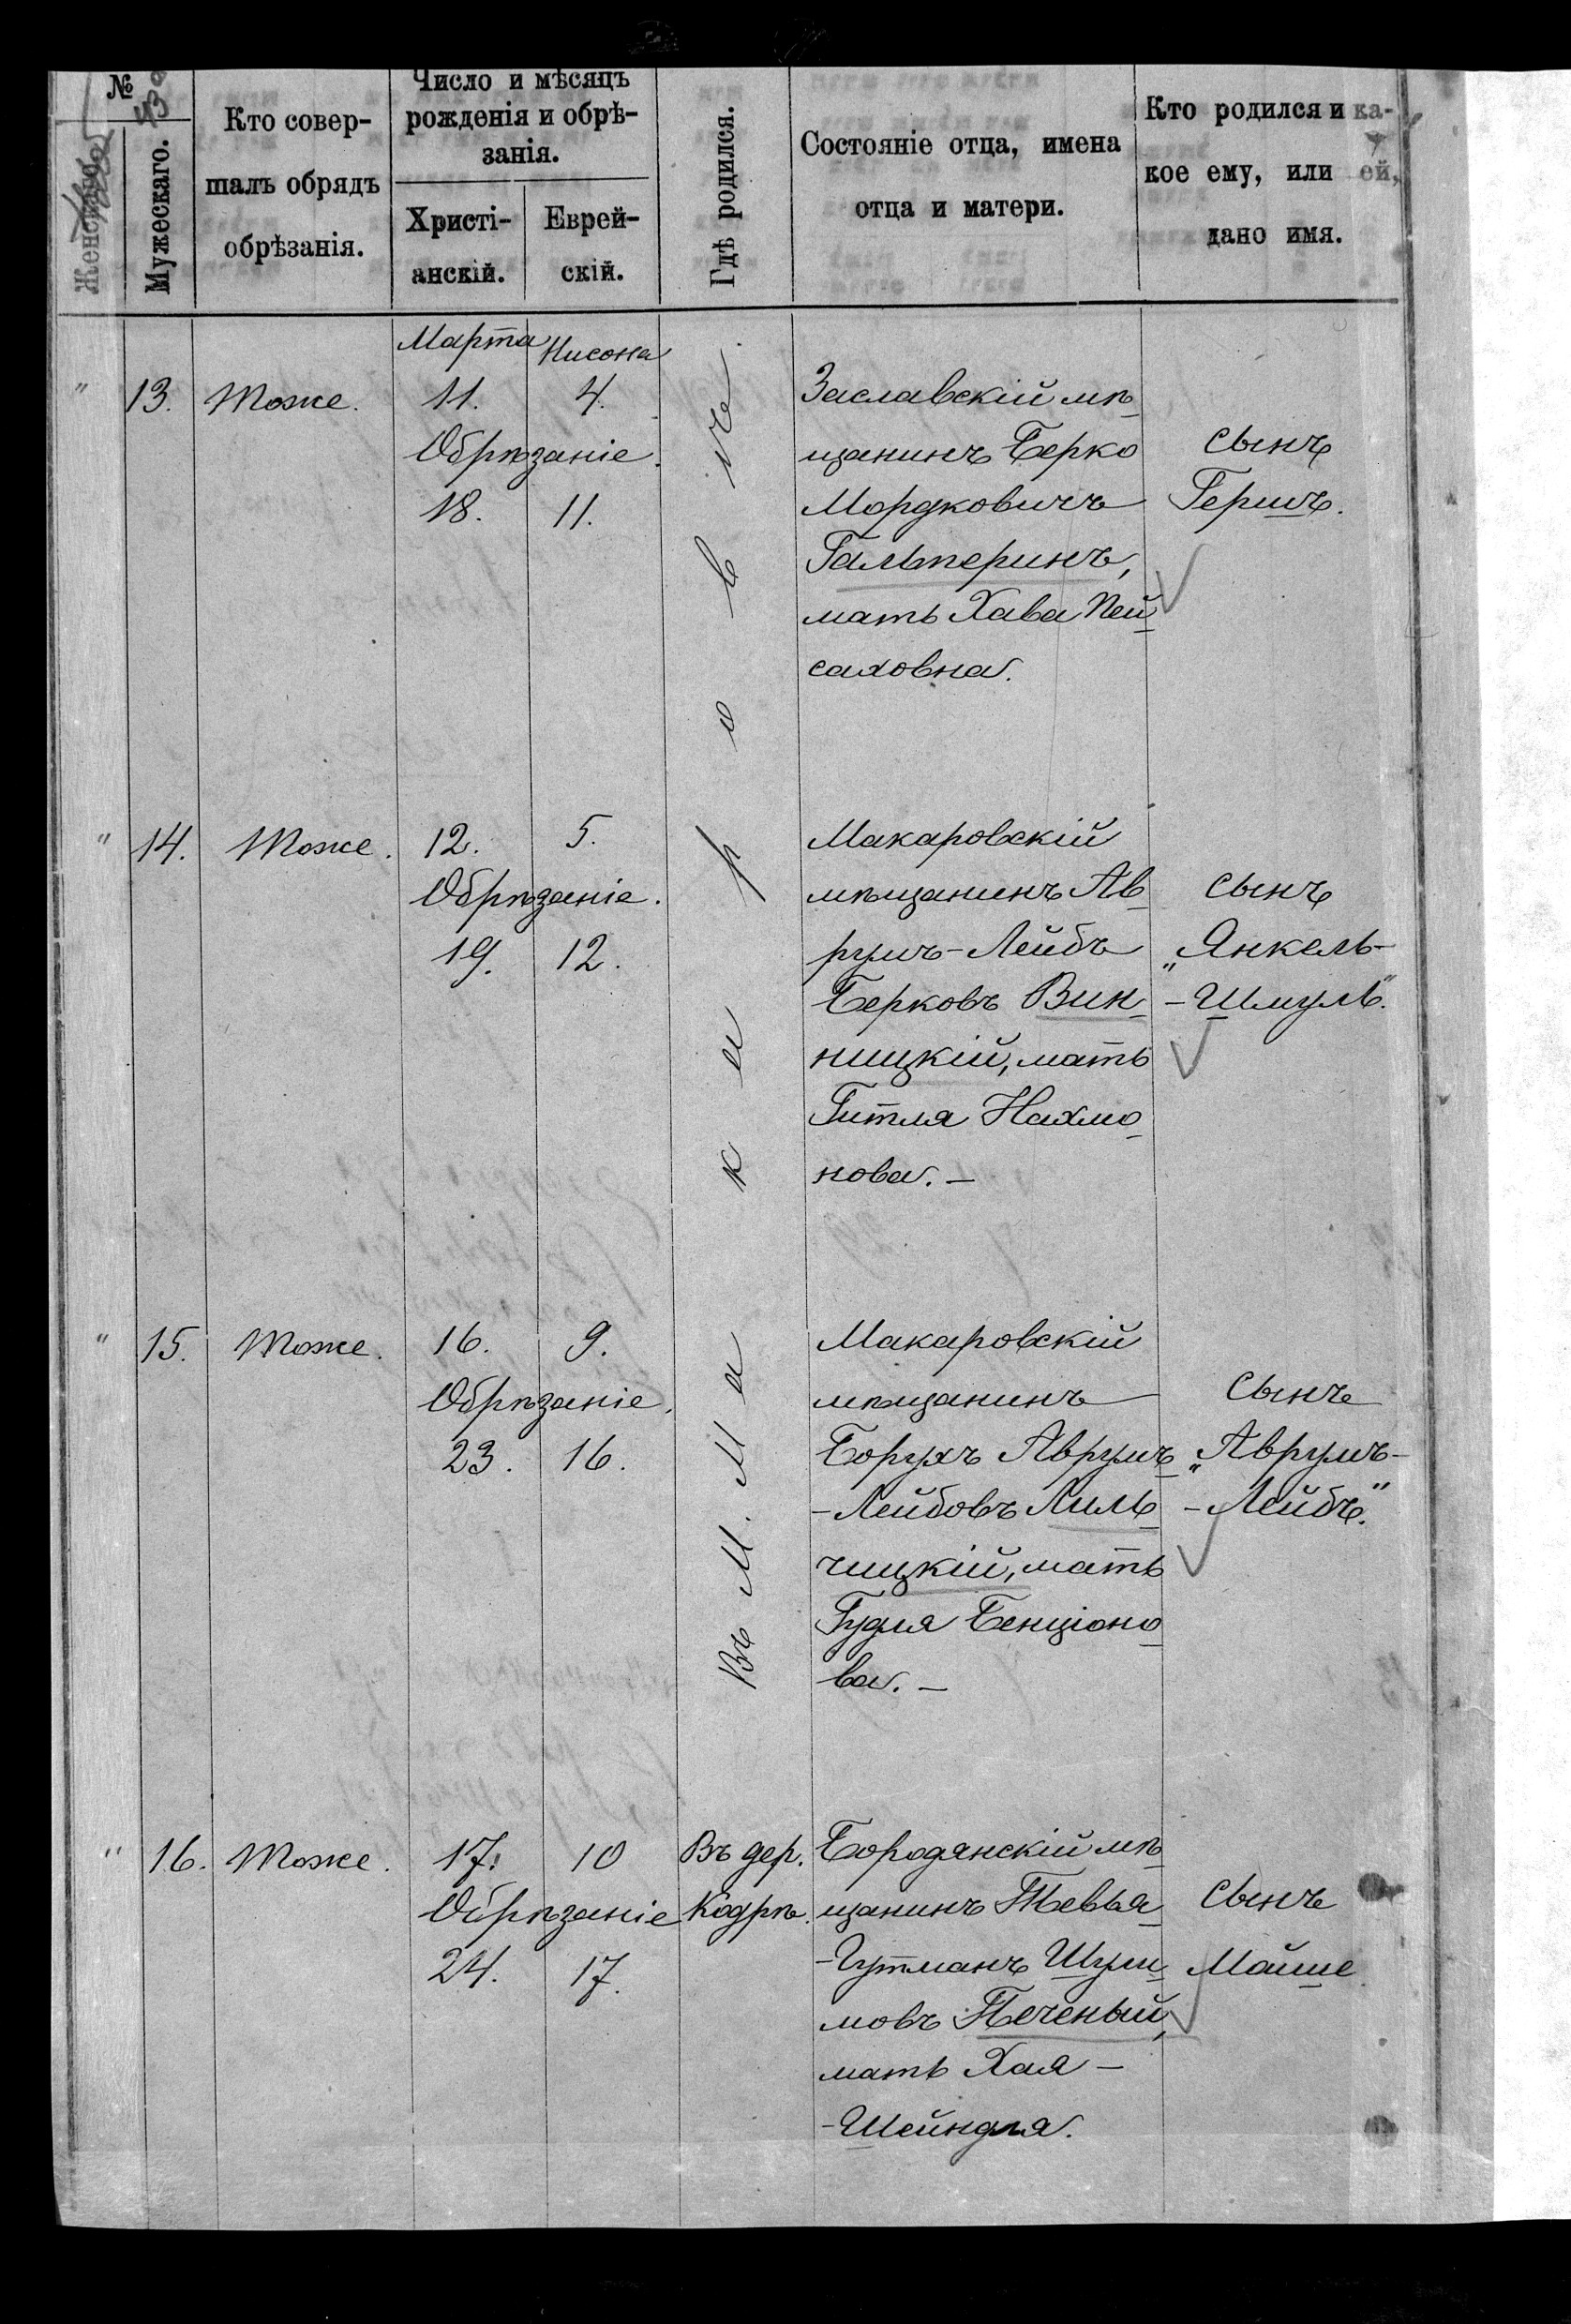 №
Женскаго.
Мужескаго.
Кто совер-
шалъ обрядъ
обрѣзанія.
Число и мѣсяцъ
рожденія и обрѣ-
занія.
Христі-
анскій.
Еврей-
скій.
Гдѣ родился.
Состояніе отца, имена
отца и матери.
Кто родился и ка-
кое ему, или ей,
дано имя.
Марта Нисона
" 13. Тоже. 11. 4.
Обрѣзаніе.
18. 11.
Заславскій мѣ-
щанинъ Берко
Мордковичъ
Гальперинъ,
мать Хава Пей-
саховна.
Сынъ
Гершъ.
Въ М. Макаровѣ.
" 14. Тоже. 12. 5.
Обрѣзаніе.
19. 12.
Макаровскій
мѣщанинъ Ав-
румъ-Лейбъ
Берковъ Вин-
ницкій, мать
Гитля Нахмо-
нова. –
Сынъ
„Янкель-
-Шмуль".
" 15. Тоже. 16. 9.
Обрѣзаніе.
23. 16.
Макаровскій
мѣщанинъ
Борухъ Аврумъ-
-Лейбовъ Лиль-
чицкій, мать
Гудля Бенціоно-
ва. –
Сынъ
„Аврумъ-
-Лейбъ."
" 16. Тоже. 17. 10
Обрѣзаніе
24. 17.
Въ дер.
Кодрѣ.
Бородянскій мѣ-
щанинъ Тевья-
-Гутманъ Шули-
мовъ Печеный,
мать Хая –
-Шейндля.
Сынъ
Майше